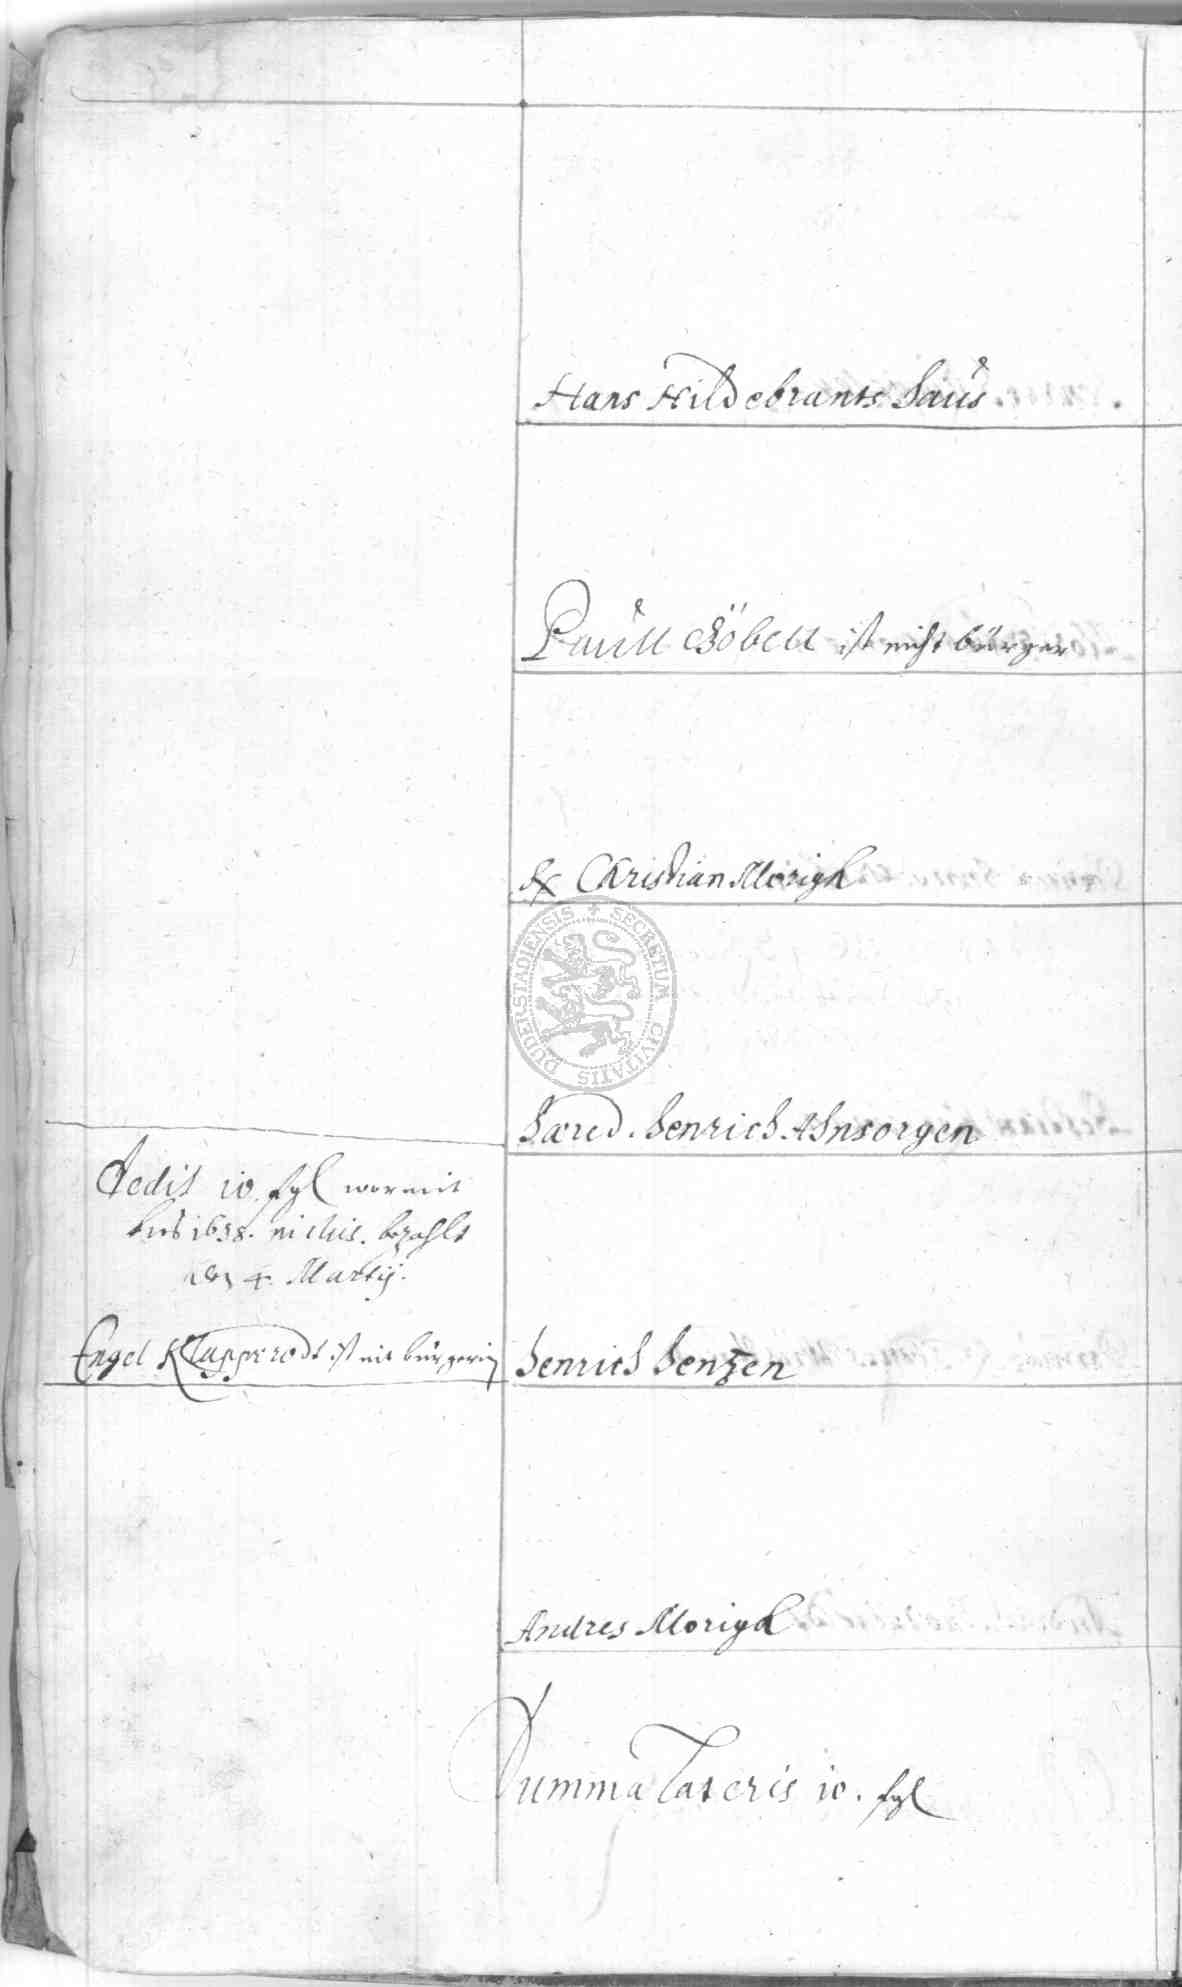 Hans Hildebrants Haus
Paull Göbell ist nicht bürger
Christian Morigh
Hæred. Henrich Ahnsorgen
dedit 10 fgl wormit
bis 1638. inclus. bezahlt
den 4. Martij.
Engel Klapperodt ist nit bürgerin
Henrich Hentzen
Andres Morigh
Summa Lateris 10. fgl
SECRETUM CIVITATIS DUDERSTADIENSIS